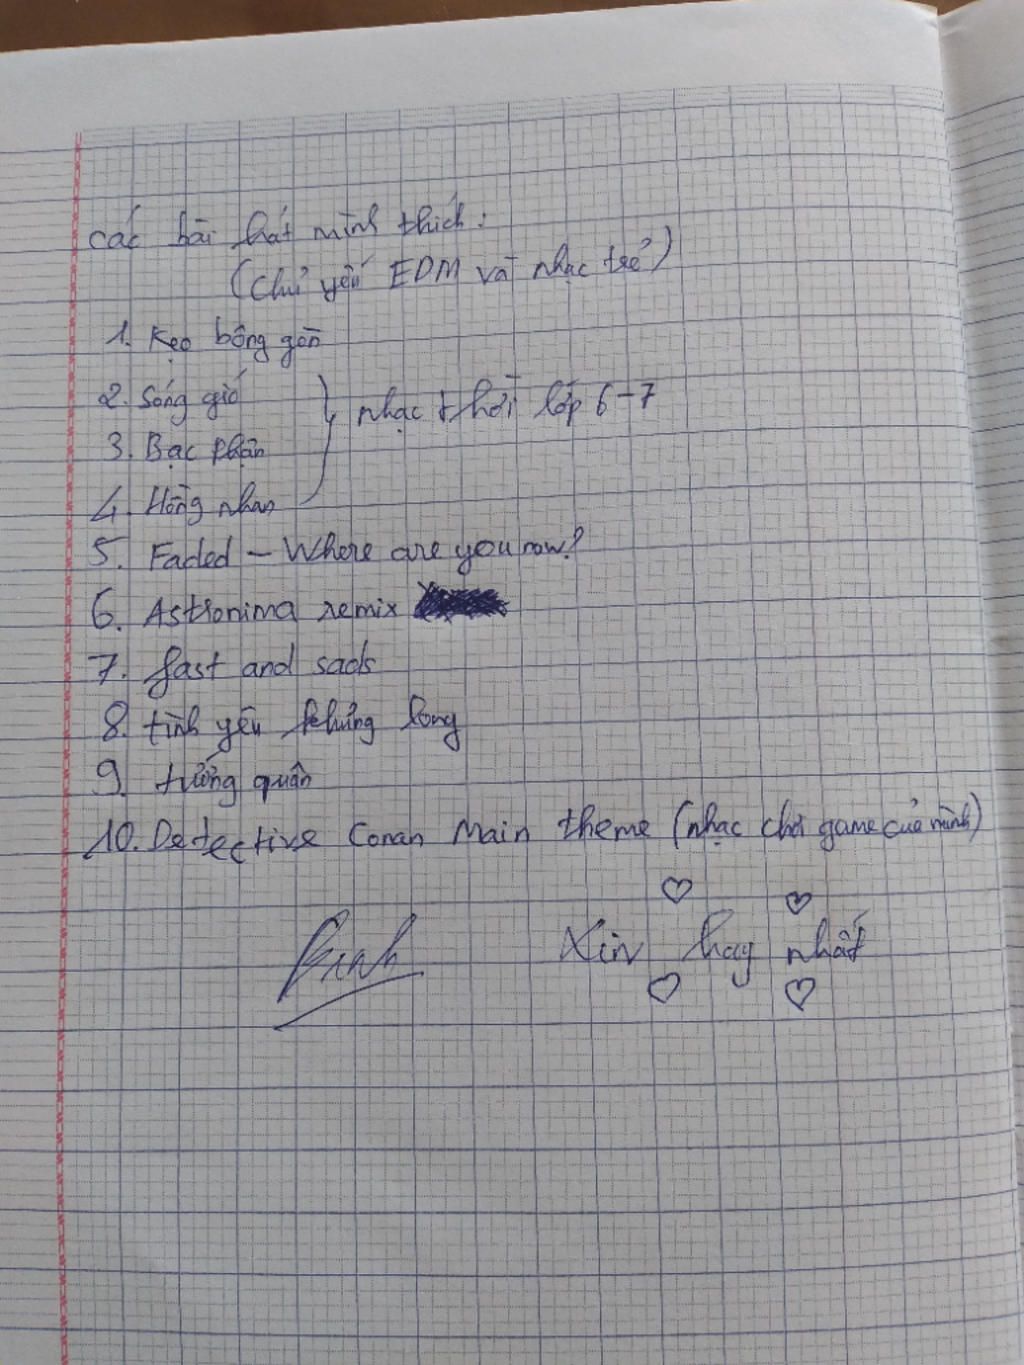 các bài hát mình thích:
(chủ yếu EDM và nhạc trẻ)
1. Kẹo bông gòn
2. Sóng gió
3. Bạc phận
4. Hồng nhan
nhạc thời lớp 6-7
5. Faded – Where are you now?
6. Astronima remix
7. fast and sads
8. tình yêu khủng long
9. tướng quân
10. Detective Conan Main theme (nhạc chơi game của mình)
Xin hay nhất